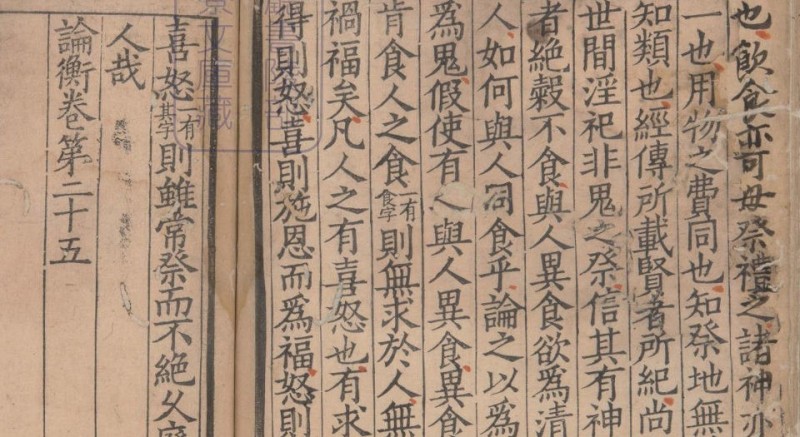 也飮食亦可毋祭禮之諸神亦
一也用物之費同也知祭地無
知類也經傳所載賢者所紀尚
世間淫祀非鬼之祭信其有神
者絶糓不食與人異食欲爲清
人如何與人同食乎論之以爲
爲鬼假使有人與人異食異食
肯食人之食一有食字則無求於人無
禍福矣凡人之有喜怒也有求
得則怒喜則施恩而爲福怒則
喜怒一有其字則雖常祭而不絶久廢
人哉
論衡卷第二十五
文庫藏